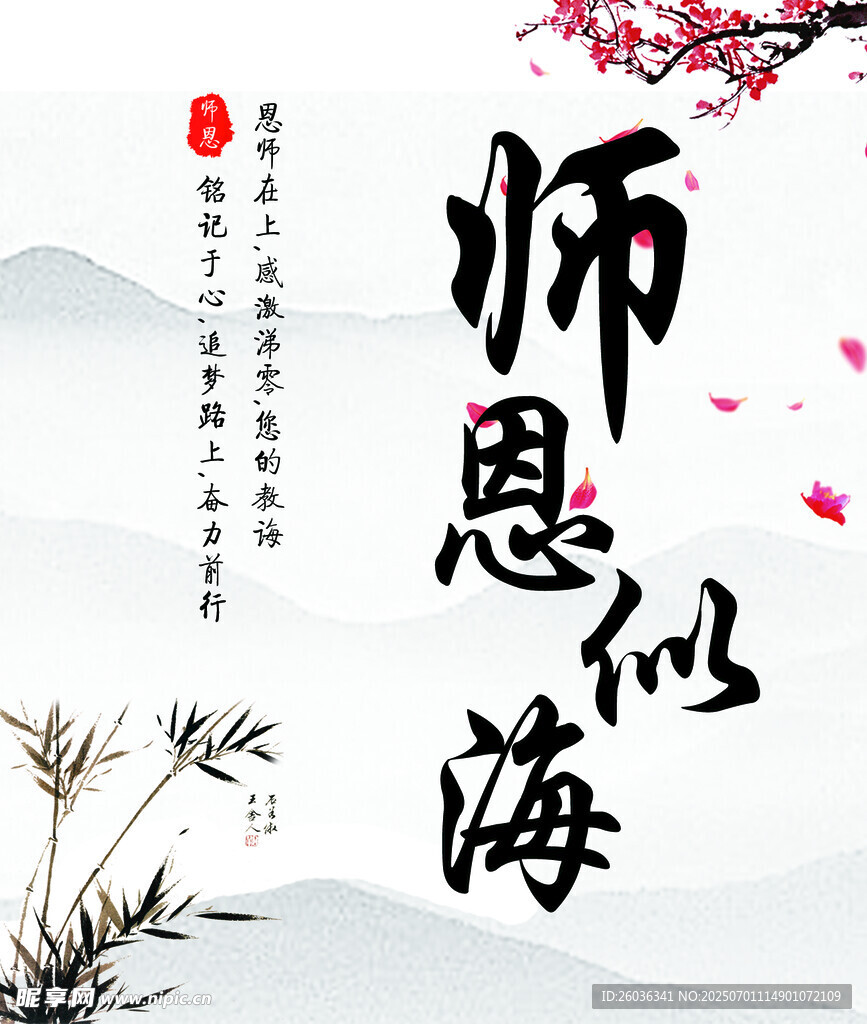 师恩似海
恩师在上、感激涕零、您的教诲
铭记于心、追梦路上、奋力前行
师恩
王舍人
昵享网 www.nipic.cn
ID:26036341 NO:20250701114901072109